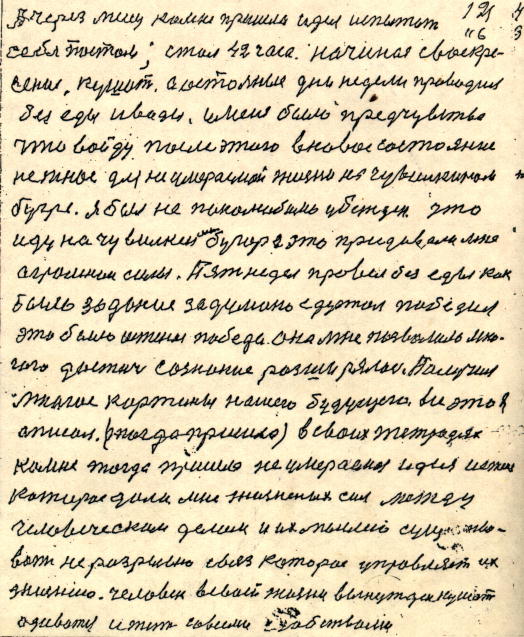 Через мисц комне пришла идея испытат 121
себя постом, стал 42 часа. начиная своскре-
сения, кушат. а состояные дни недели проводил
без еды и вады, имене было предчувства
что войду после этого в новое состояние
нежное для не умераемой жизни на чувилкином
бугре. Я был не поколибимо убежден это
иду на чувилкин бугор а это придавала мне
агромною силы. Пят недел провел без еды как
было задоние задумано едустал победил
это было истена победа. она мне позволила мно-
гого достич сознание розширялос. Палучил
многое картины нашего будущего все это я
описал. (тогда пришло) в своих тетрадях
комне тогда пришло не умераемая идея истена
которое дала мне жизненых сил между
человеческим делом и их мыслию существо-
ват не розрывно связ которое управляет их
жизнию. человек в своей жизни вынужден кушат
одиватця и жит